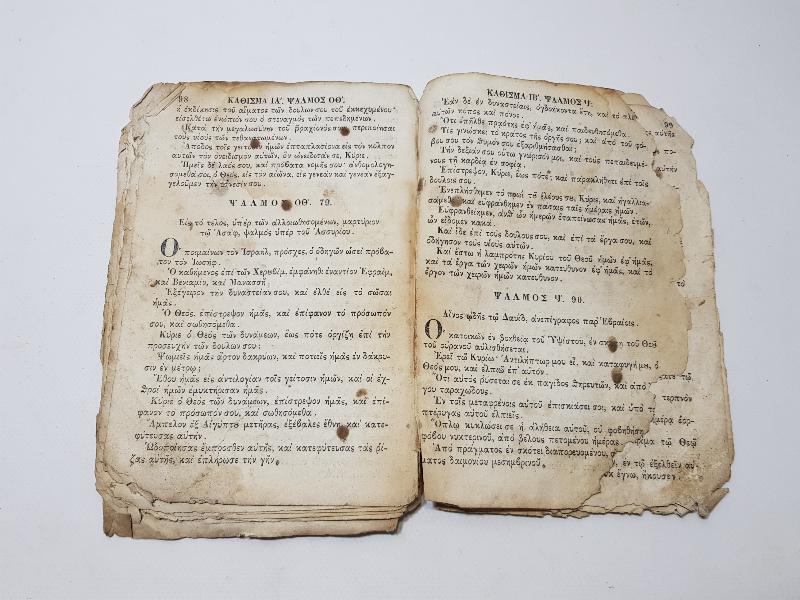 98 ΚΑΘΙΣΜΑ ΙΑ΄. ΨΑΛΜΟΣ ΟΘ΄.
ἡ ἐκδίκησις τοῦ αἵματος τῶν δούλων σου τοῦ ἐκκεχυμένου·
εἰσελθέτω ἐνώπιόν σου ὁ στεναγμὸς τῶν πεπεδημένων.
Κατὰ τὴν μεγαλωσύνην τοῦ βραχίονός σου περιποίησαι
τοὺς υἱοὺς τῶν τεθανατωμένων.
Ἀπόδος τοῖς γείτοσιν ἡμῶν ἑπταπλασίονα εἰς τὸν κόλπον
αὐτῶν τὸν ὀνειδισμὸν αὐτῶν, ὃν ὠνείδισάν σε, Κύριε.
Ἡμεῖς δὲ λαός σου, καὶ πρόβατα νομῆς σου· ἀνθομολογη-
σόμεθά σοι ὁ Θεὸς, εἰς τὸν αἰῶνα, εἰς γενεὰν καὶ γενεὰν ἐξαγ-
γελοῦμεν τὴν αἴνεσίν σου.
ΨΑΛΜΟΣ ΟΘ΄. 79.
Εἰς τὸ τέλος, ὑπὲρ τῶν ἀλλοιωθησομένων, μαρτύριον
τῷ Ἀσάφ, ψαλμὸς ὑπὲρ τοῦ Ἀσσυρίου.
Ὁ ποιμαίνων τὸν Ἰσραὴλ, πρόσχες, ὁ ὁδηγῶν ὡσεὶ πρόβα-
τον τὸν Ἰωσήφ.
Ὁ καθήμενος ἐπὶ τῶν Χερουβὶμ, ἐμφάνηθι ἐναντίον Ἐφραΐμ,
καὶ Βενιαμὶν, καὶ Μανασσῆ.
Ἐξέγειρον τὴν δυναστείαν σου, καὶ ἐλθὲ εἰς τὸ σῶσαι
ἡμᾶς.
Ὁ Θεὸς, ἐπίστρεψον ἡμᾶς, καὶ ἐπίφανον τὸ πρόσωπόν
σου, καὶ σωθησόμεθα.
Κύριε ὁ Θεὸς τῶν δυνάμεων, ἕως πότε ὀργίζῃ ἐπὶ τὴν
προσευχὴν τῶν δούλων σου;
Ψωμιεῖς ἡμᾶς ἄρτον δακρύων, καὶ ποτιεῖς ἡμᾶς ἐν δάκρυ-
σιν ἐν μέτρῳ;
Ἔθου ἡμᾶς εἰς ἀντιλογίαν τοῖς γείτοσιν ἡμῶν, καὶ οἱ ἐχ-
θροὶ ἡμῶν ἐμυκτήρισαν ἡμᾶς.
Κύριε ὁ Θεὸς τῶν δυνάμεων, ἐπίστρεψον ἡμᾶς, καὶ ἐπί-
φανον τὸ πρόσωπόν σου, καὶ σωθησόμεθα.
Ἄμπελον ἐξ Αἰγύπτου μετῆρας, ἐξέβαλες ἔθνη καὶ κατε-
φύτευσας αὐτήν.
Ὡδοποίησας ἔμπροσθεν αὐτῆς, καὶ κατεφύτευσας τὰς ῥί-
ζας αὐτῆς, καὶ ἐπλήρωσε τὴν γῆν.
ΚΑΘΙΣΜΑ ΙΒ΄. ΨΑΛΜΟΣ Ϟ΄. 99
Ἐὰν δὲ ἐν δυναστείαις, ὀγδοήκοντα ἔτη, καὶ τὸ
αὐτῶν κόπος καὶ πόνος.
Ὅτι ἐπῆλθε πραότης ἐφ᾽ ἡμᾶς, καὶ παιδευθησόμεθα.
Τίς γινώσκει τὸ κράτος τῆς ὀργῆς σου; καὶ ἀπὸ τοῦ φό-
βου σου τὸν θυμόν σου ἐξαριθμήσασθαι;
Τὴν δεξιάν σου οὕτω γνώρισόν μοι, καὶ τοὺς πεπαιδευμέ-
νους τῇ καρδίᾳ ἐν σοφίᾳ.
Ἐπίστρεψον, Κύριε, ἕως πότε; καὶ παρακλήθητι ἐπὶ τοῖς
δούλοις σου.
Ἐνεπλήσθημεν τὸ πρωῒ τοῦ ἐλέους σου, Κύριε, καὶ ἠγαλλια-
σάμεθα, καὶ εὐφράνθημεν ἐν πάσαις ταῖς ἡμέραις ἡμῶν.
Εὐφράνθημεν, ἀνθ᾽ ὧν ἡμερῶν ἐταπείνωσας ἡμᾶς, ἐτῶν,
ὧν εἴδομεν κακά.
Καὶ ἴδε ἐπὶ τοὺς δούλους σου, καὶ ἐπὶ τὰ ἔργα σου, καὶ
ὁδήγησον τοὺς υἱοὺς αὐτῶν.
Καὶ ἔστω ἡ λαμπρότης Κυρίου τοῦ Θεοῦ ἡμῶν ἐφ᾽ ἡμᾶς,
καὶ τὰ ἔργα τῶν χειρῶν ἡμῶν κατεύθυνον ἐφ᾽ ἡμᾶς, καὶ τὸ
ἔργον τῶν χειρῶν ἡμῶν κατεύθυνον.
ΨΑΛΜΟΣ Ϟ. 90.
Αἶνος ᾠδῆς τῷ Δαυῒδ, ἀνεπίγραφος παρ᾽ Ἑβραίοις.
Ὁ κατοικῶν ἐν βοηθείᾳ τοῦ Ὑψίστου, ἐν σκέπῃ τοῦ Θεοῦ
τοῦ οὐρανοῦ αὐλισθήσεται.
Ἐρεῖ τῷ Κυρίῳ· Ἀντιλήπτωρ μου εἶ, καὶ καταφυγή μου, ὁ
Θεός μου, καὶ ἐλπιῶ ἐπ᾽ αὐτόν.
Ὅτι αὐτὸς ῥύσεταί σε ἐκ παγίδος θηρευτῶν, καὶ ἀπὸ
γου ταραχώδους.
Ἐν τοῖς μεταφρένοις αὐτοῦ ἐπισκιάσει σοι, καὶ ὑπὸ τὰς
πτέρυγας αὐτοῦ ἐλπιεῖς.
Ὅπλῳ κυκλώσει σε ἡ ἀλήθεια αὐτοῦ, οὐ φοβηθήσῃ
φόβου νυκτερινοῦ, ἀπὸ βέλους πετομένου ἡμέρας.
Ἀπὸ πράγματος ἐν σκότει διαπορευομένου,
ματος δαιμονίου μεσημβρινοῦ.
τῷ Θεῷ
ἐν τῷ ἐξελθεῖν αὐ-
ἔγνω, ἤκουσεν.